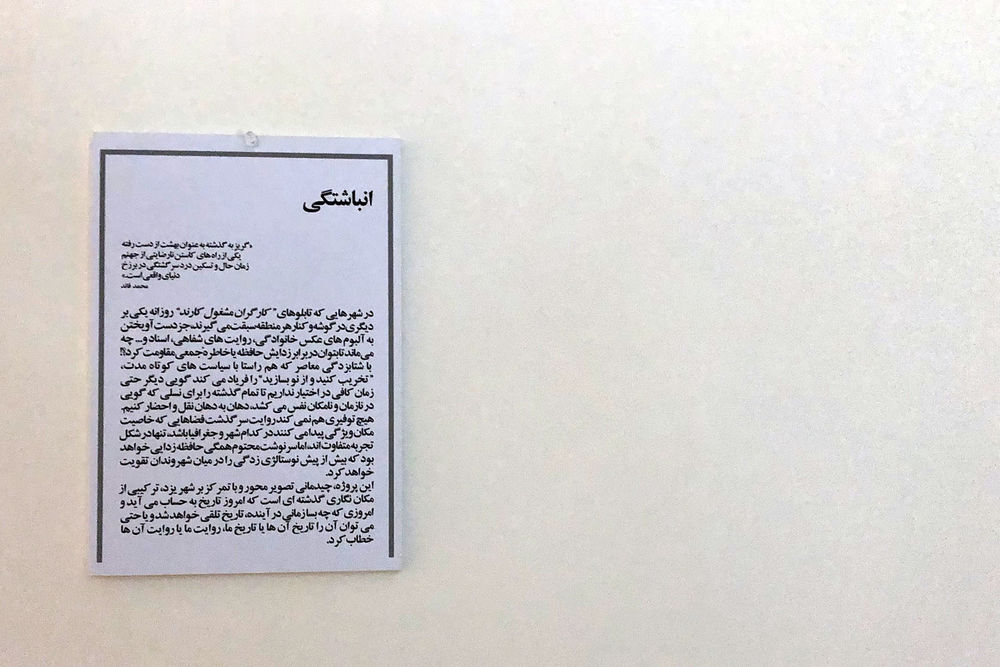 انباشتگی
«گریز به گذشته به عنوان بهشت از دست رفته
یکی از راه های کاستن نارضایتی از جهنم
زمان حال و تسکین درد سرگشتگی در برزخ
دنیای واقعی است.»
محمد قائد
در شهرهایی که تابلوهای "کارگران مشغول کارند" روزانه یکی بر
دیگری در گوشه و کنار هر منطقه سبقت می گیرند، جز دست آویختن
به آلبوم های عکس خانوادگی، روایت های شفاهی، اسناد و... چه
می ماند تا بتوان در برابر زدایش حافظه یا خاطره جمعی مقاومت کرد؟!
با شتابزدگی معاصر که هم راستا با سیاست های کوتاه مدت،
"تخریب کنید و از نو بسازید" را فریاد می کند گویی دیگر حتی
زمان کافی در اختیار نداریم تا تمام گذشته را برای نسلی که گویی
در نازمان و نامکان نفس می کشد، دهان به دهان نقل و احضار کنیم.
هیچ توفیری هم نمی کند روایت سرگذشت فضاهایی که خاصیت
مکان ویژگی پیدا می کنند در کدام شهر و جغرافیا باشد، تنها در شکل
تجربه متفاوت اند، اما سرنوشت محتوم همگی حافظه زدایی خواهد
بود که بیش از پیش نوستالژی زدگی را در میان شهروندان تقویت
خواهد کرد.
این پروژه، چیدمانی تصویر محور و با تمرکز بر شهر یزد، ترکیبی از
مکان نگاری گذشته ای است که امروز تاریخ به حساب می آید و
امروزی که چه بسا زمانی در آینده، تاریخ تلقی خواهد شد و یا حتی
می توان آن را تاریخ آن ها یا تاریخ ما، روایت ما یا روایت آن ها
خطاب کرد.